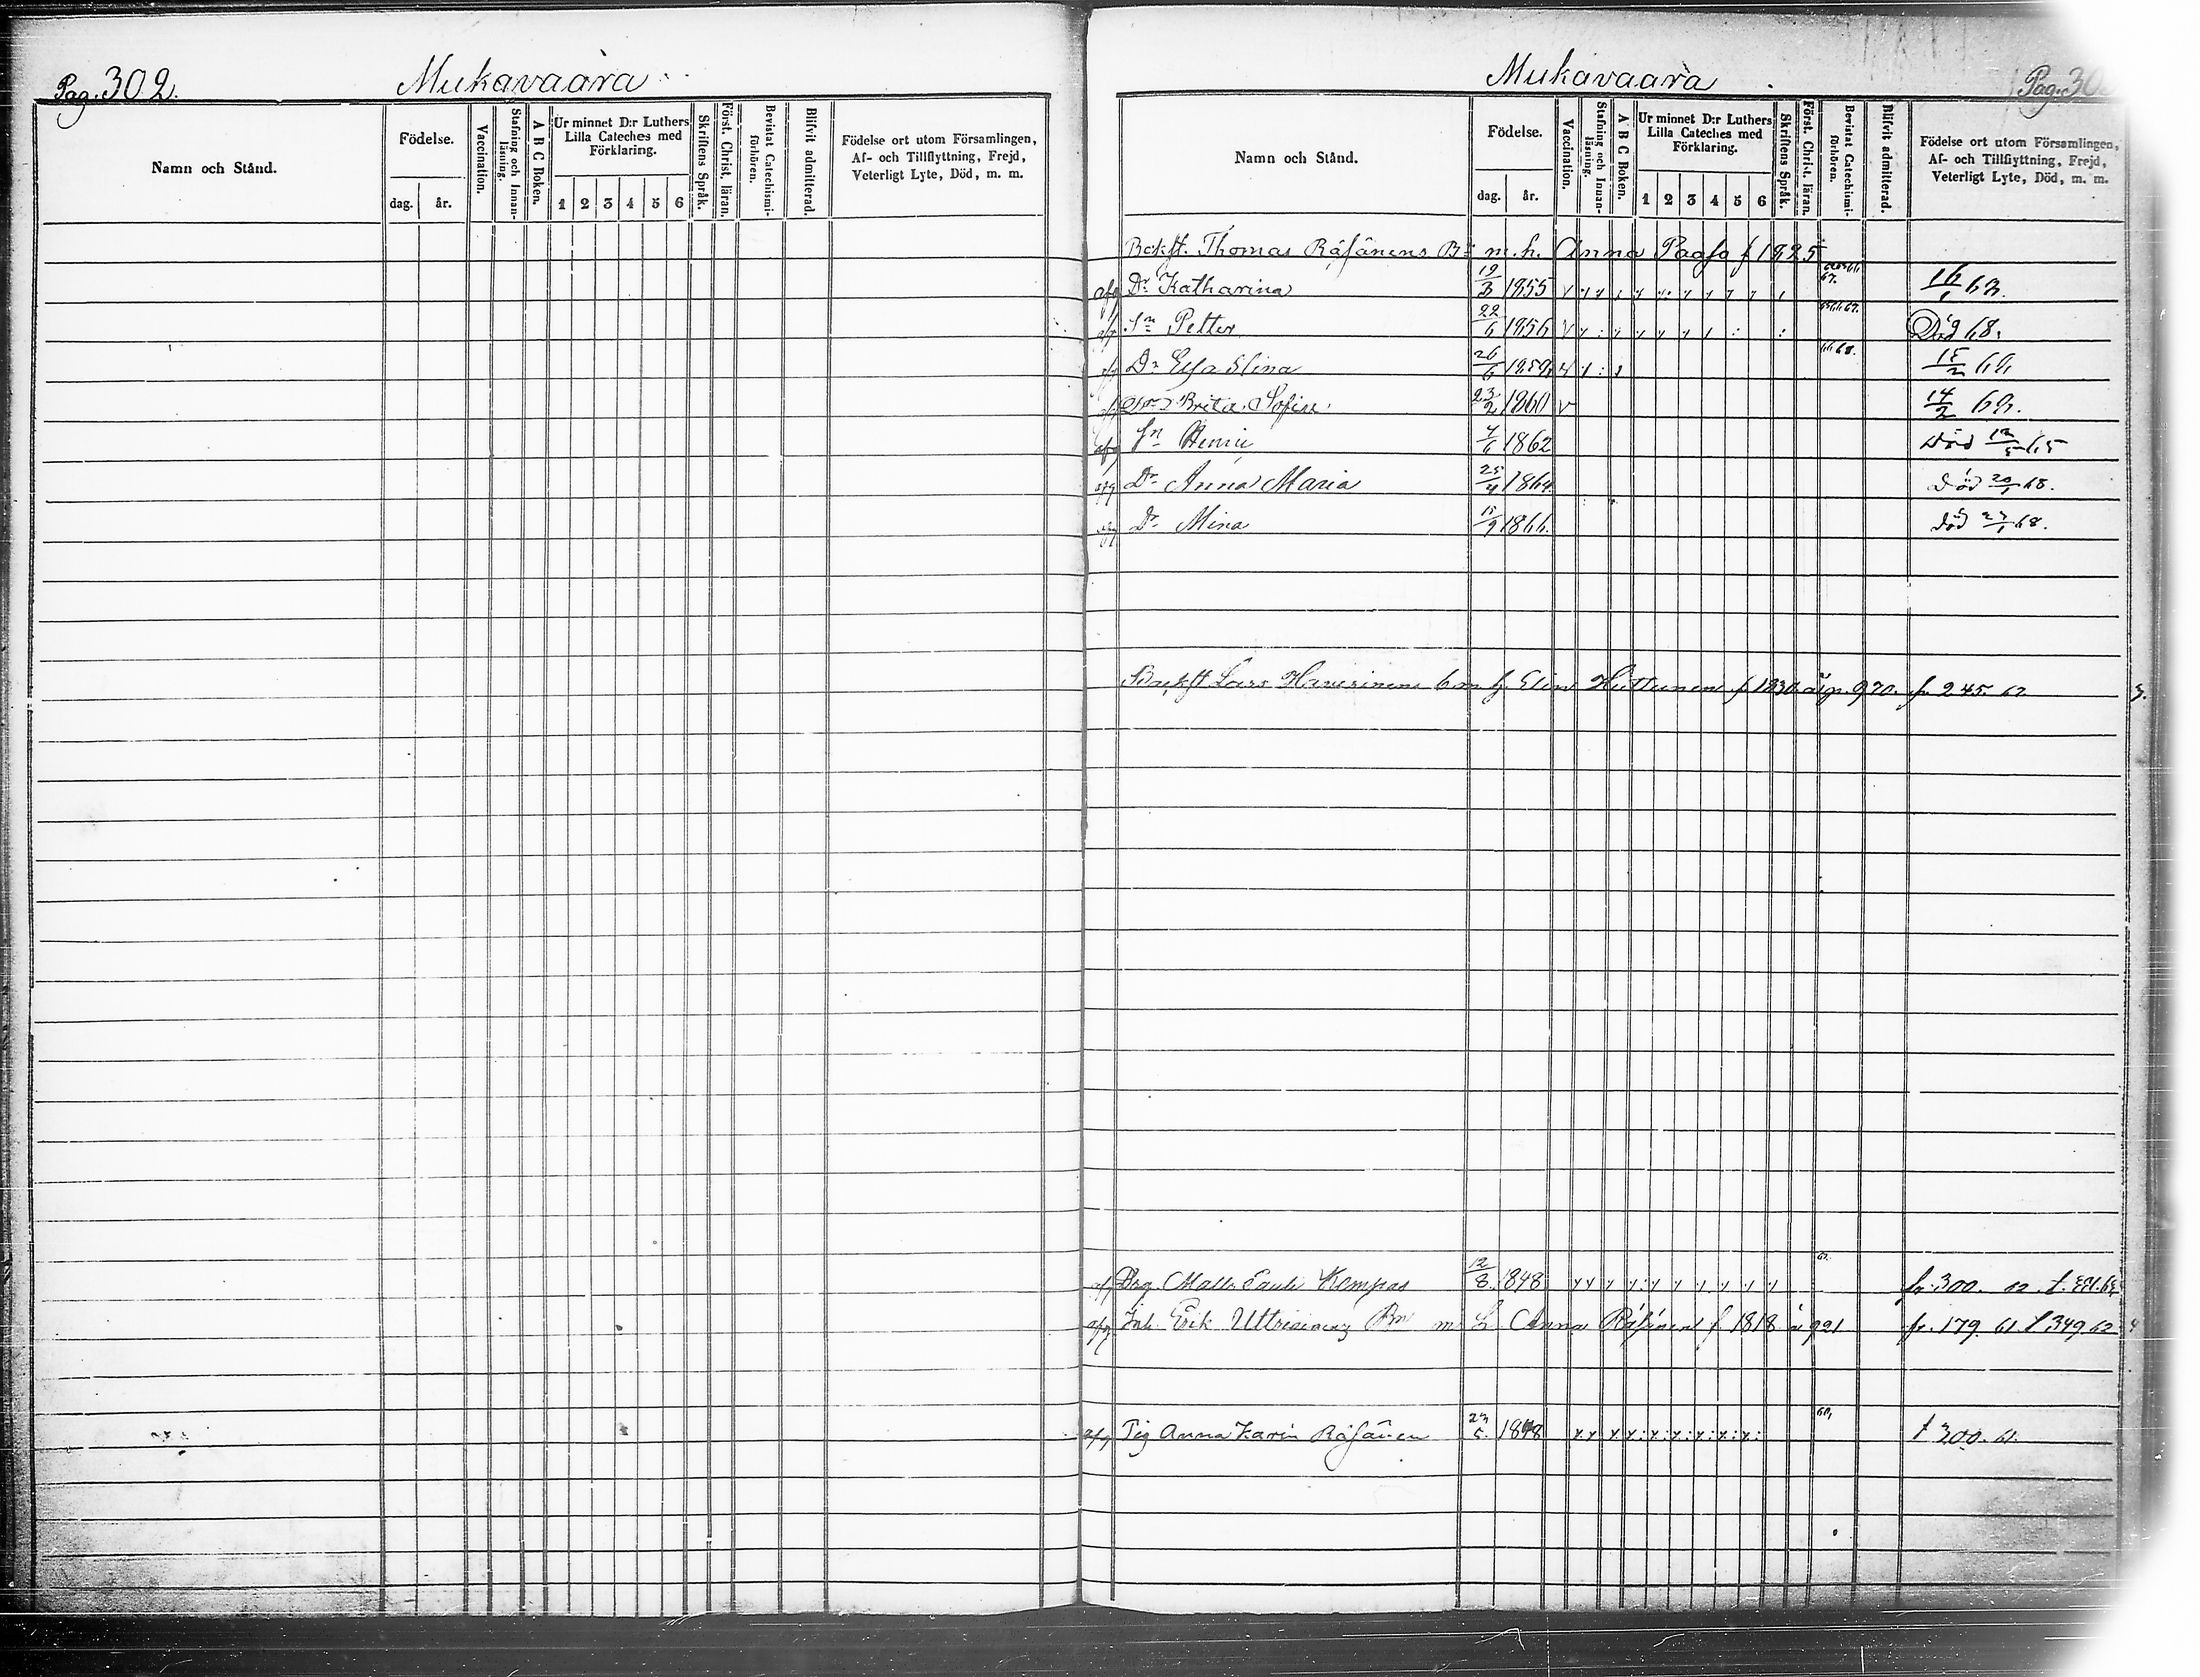 Pag. 302.
Mukavaara
Namn och Stånd.
Födelse.
dag.
år.
Vaccination.
Stafning och Innanläsning.
A B C Boken.
Ur minnet D:r Luthers Lilla Cateches med Förklaring.
1 2 3 4 5 6
Skriftens Språk.
Först. Christ. läran.
Bevistat Catechismiförhören.
Blifvit admitterad.
Födelse ort utom Församlingen,
Af- och Tillflyttning, Frejd,
Veterligt Lyte, Död, m. m.
Mukavaara
Pag. 30
Namn och Stånd.
Födelse.
dag.
år.
Vaccination.
Stafning och Innanläsning.
A B C Boken.
Ur minnet D:r Luthers Lilla Cateches med Förklaring.
1 2 3 4 5 6
Skriftens Språk.
Först. Christ. läran.
Bevistat Catechismiförhören.
Blifvit admitterad.
Födelse ort utom Församlingen,
Af- och Tillflyttning, Frejd,
Veterligt Lyte, Död, m. m.
Thomas Räsänens Bn m. h. Anna Paaso f 1825
afg Dr Katharina 19/3 1855 67. 16/1
afg Sn Petter 22/6 1856 Död 68.
afg Dr Eva Stina 26/6 1859 66 68. 15/2
Brita Sofia 23/2 1860 14/2
afg Sn Henric 7/6 1862 Död 65
afg Dr Anna Maria 25/4 1864 Död 20/1 68.
afg Dr Mina 15/9 1866. död 68.
Lars Haverinens Huttunen f 1830 fr 245. 62
afg Drg. Matts Kempas 12/8 1848 fr. 300. 62
afg Inh. Erik Bn m h Anna Räsänen f 1818 fr. 179. 61. t 349 62
afg Pig Anna Karin Räsänen 23/5 1848 t 300. 61.